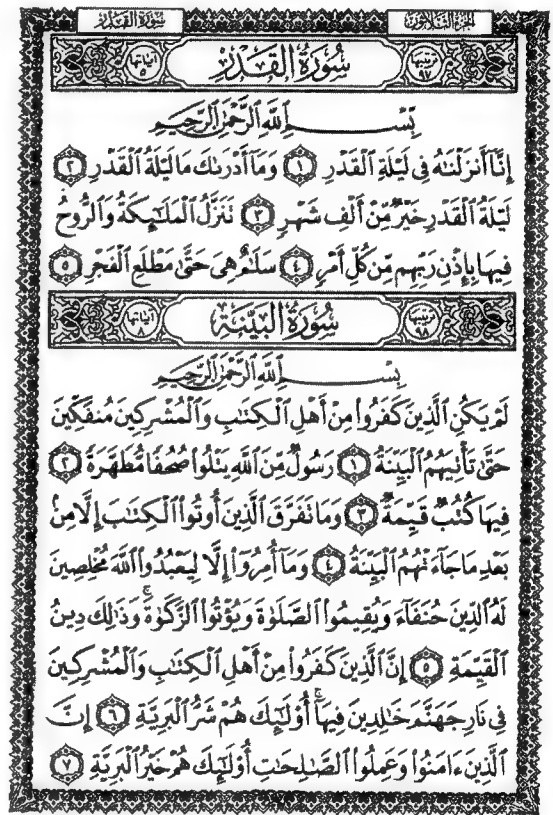 الجزء الثلاثون سورة القدر
ترتيبها ٩٧ سُورَةُ القَدْرِ آياتها ٥
بِسْمِ ٱللَّهِ ٱلرَّحْمَٰنِ ٱلرَّحِيمِ
إِنَّآ أَنزَلْنَٰهُ فِى لَيْلَةِ ٱلْقَدْرِ ١ وَمَآ أَدْرَىٰكَ مَا لَيْلَةُ ٱلْقَدْرِ ٢
لَيْلَةُ ٱلْقَدْرِ خَيْرٌ مِّنْ أَلْفِ شَهْرٍ ٣ تَنَزَّلُ ٱلْمَلَٰٓئِكَةُ وَٱلرُّوحُ
فِيهَا بِإِذْنِ رَبِّهِم مِّن كُلِّ أَمْرٍ ٤ سَلَٰمٌ هِىَ حَتَّىٰ مَطْلَعِ ٱلْفَجْرِ ٥
ترتيبها ٩٨ سُورَةُ البَيِّنَةِ آياتها ٨
بِسْمِ ٱللَّهِ ٱلرَّحْمَٰنِ ٱلرَّحِيمِ
لَمْ يَكُنِ ٱلَّذِينَ كَفَرُوا۟ مِنْ أَهْلِ ٱلْكِتَٰبِ وَٱلْمُشْرِكِينَ مُنفَكِّينَ
حَتَّىٰ تَأْتِيَهُمُ ٱلْبَيِّنَةُ ١ رَسُولٌ مِّنَ ٱللَّهِ يَتْلُوا۟ صُحُفًا مُّطَهَّرَةً ٢
فِيهَا كُتُبٌ قَيِّمَةٌ ٣ وَمَا تَفَرَّقَ ٱلَّذِينَ أُوتُوا۟ ٱلْكِتَٰبَ إِلَّا مِنۢ
بَعْدِ مَا جَآءَتْهُمُ ٱلْبَيِّنَةُ ٤ وَمَآ أُمِرُوٓا۟ إِلَّا لِيَعْبُدُوا۟ ٱللَّهَ مُخْلِصِينَ
لَهُ ٱلدِّينَ حُنَفَآءَ وَيُقِيمُوا۟ ٱلصَّلَوٰةَ وَيُؤْتُوا۟ ٱلزَّكَوٰةَ ۚ وَذَٰلِكَ دِينُ
ٱلْقَيِّمَةِ ٥ إِنَّ ٱلَّذِينَ كَفَرُوا۟ مِنْ أَهْلِ ٱلْكِتَٰبِ وَٱلْمُشْرِكِينَ
فِى نَارِ جَهَنَّمَ خَٰلِدِينَ فِيهَآ ۚ أُو۟لَٰٓئِكَ هُمْ شَرُّ ٱلْبَرِيَّةِ ٦ إِنَّ
ٱلَّذِينَ ءَامَنُوا۟ وَعَمِلُوا۟ ٱلصَّٰلِحَٰتِ أُو۟لَٰٓئِكَ هُمْ خَيْرُ ٱلْبَرِيَّةِ ٧